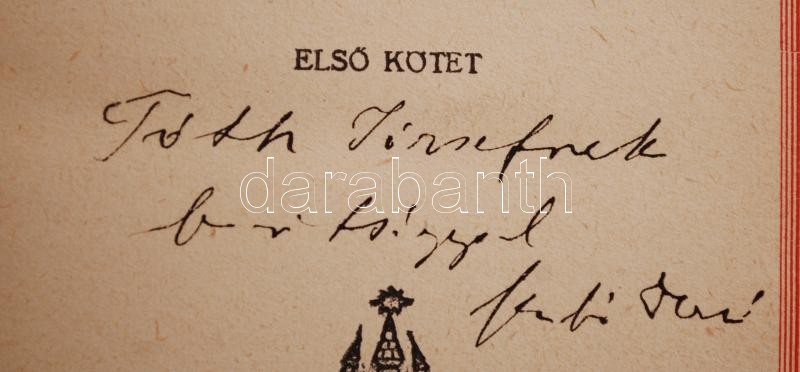 ELSŐ KÖTET
Tóth Józsefnek
barátsággal
Szabó Dezső
darabanth